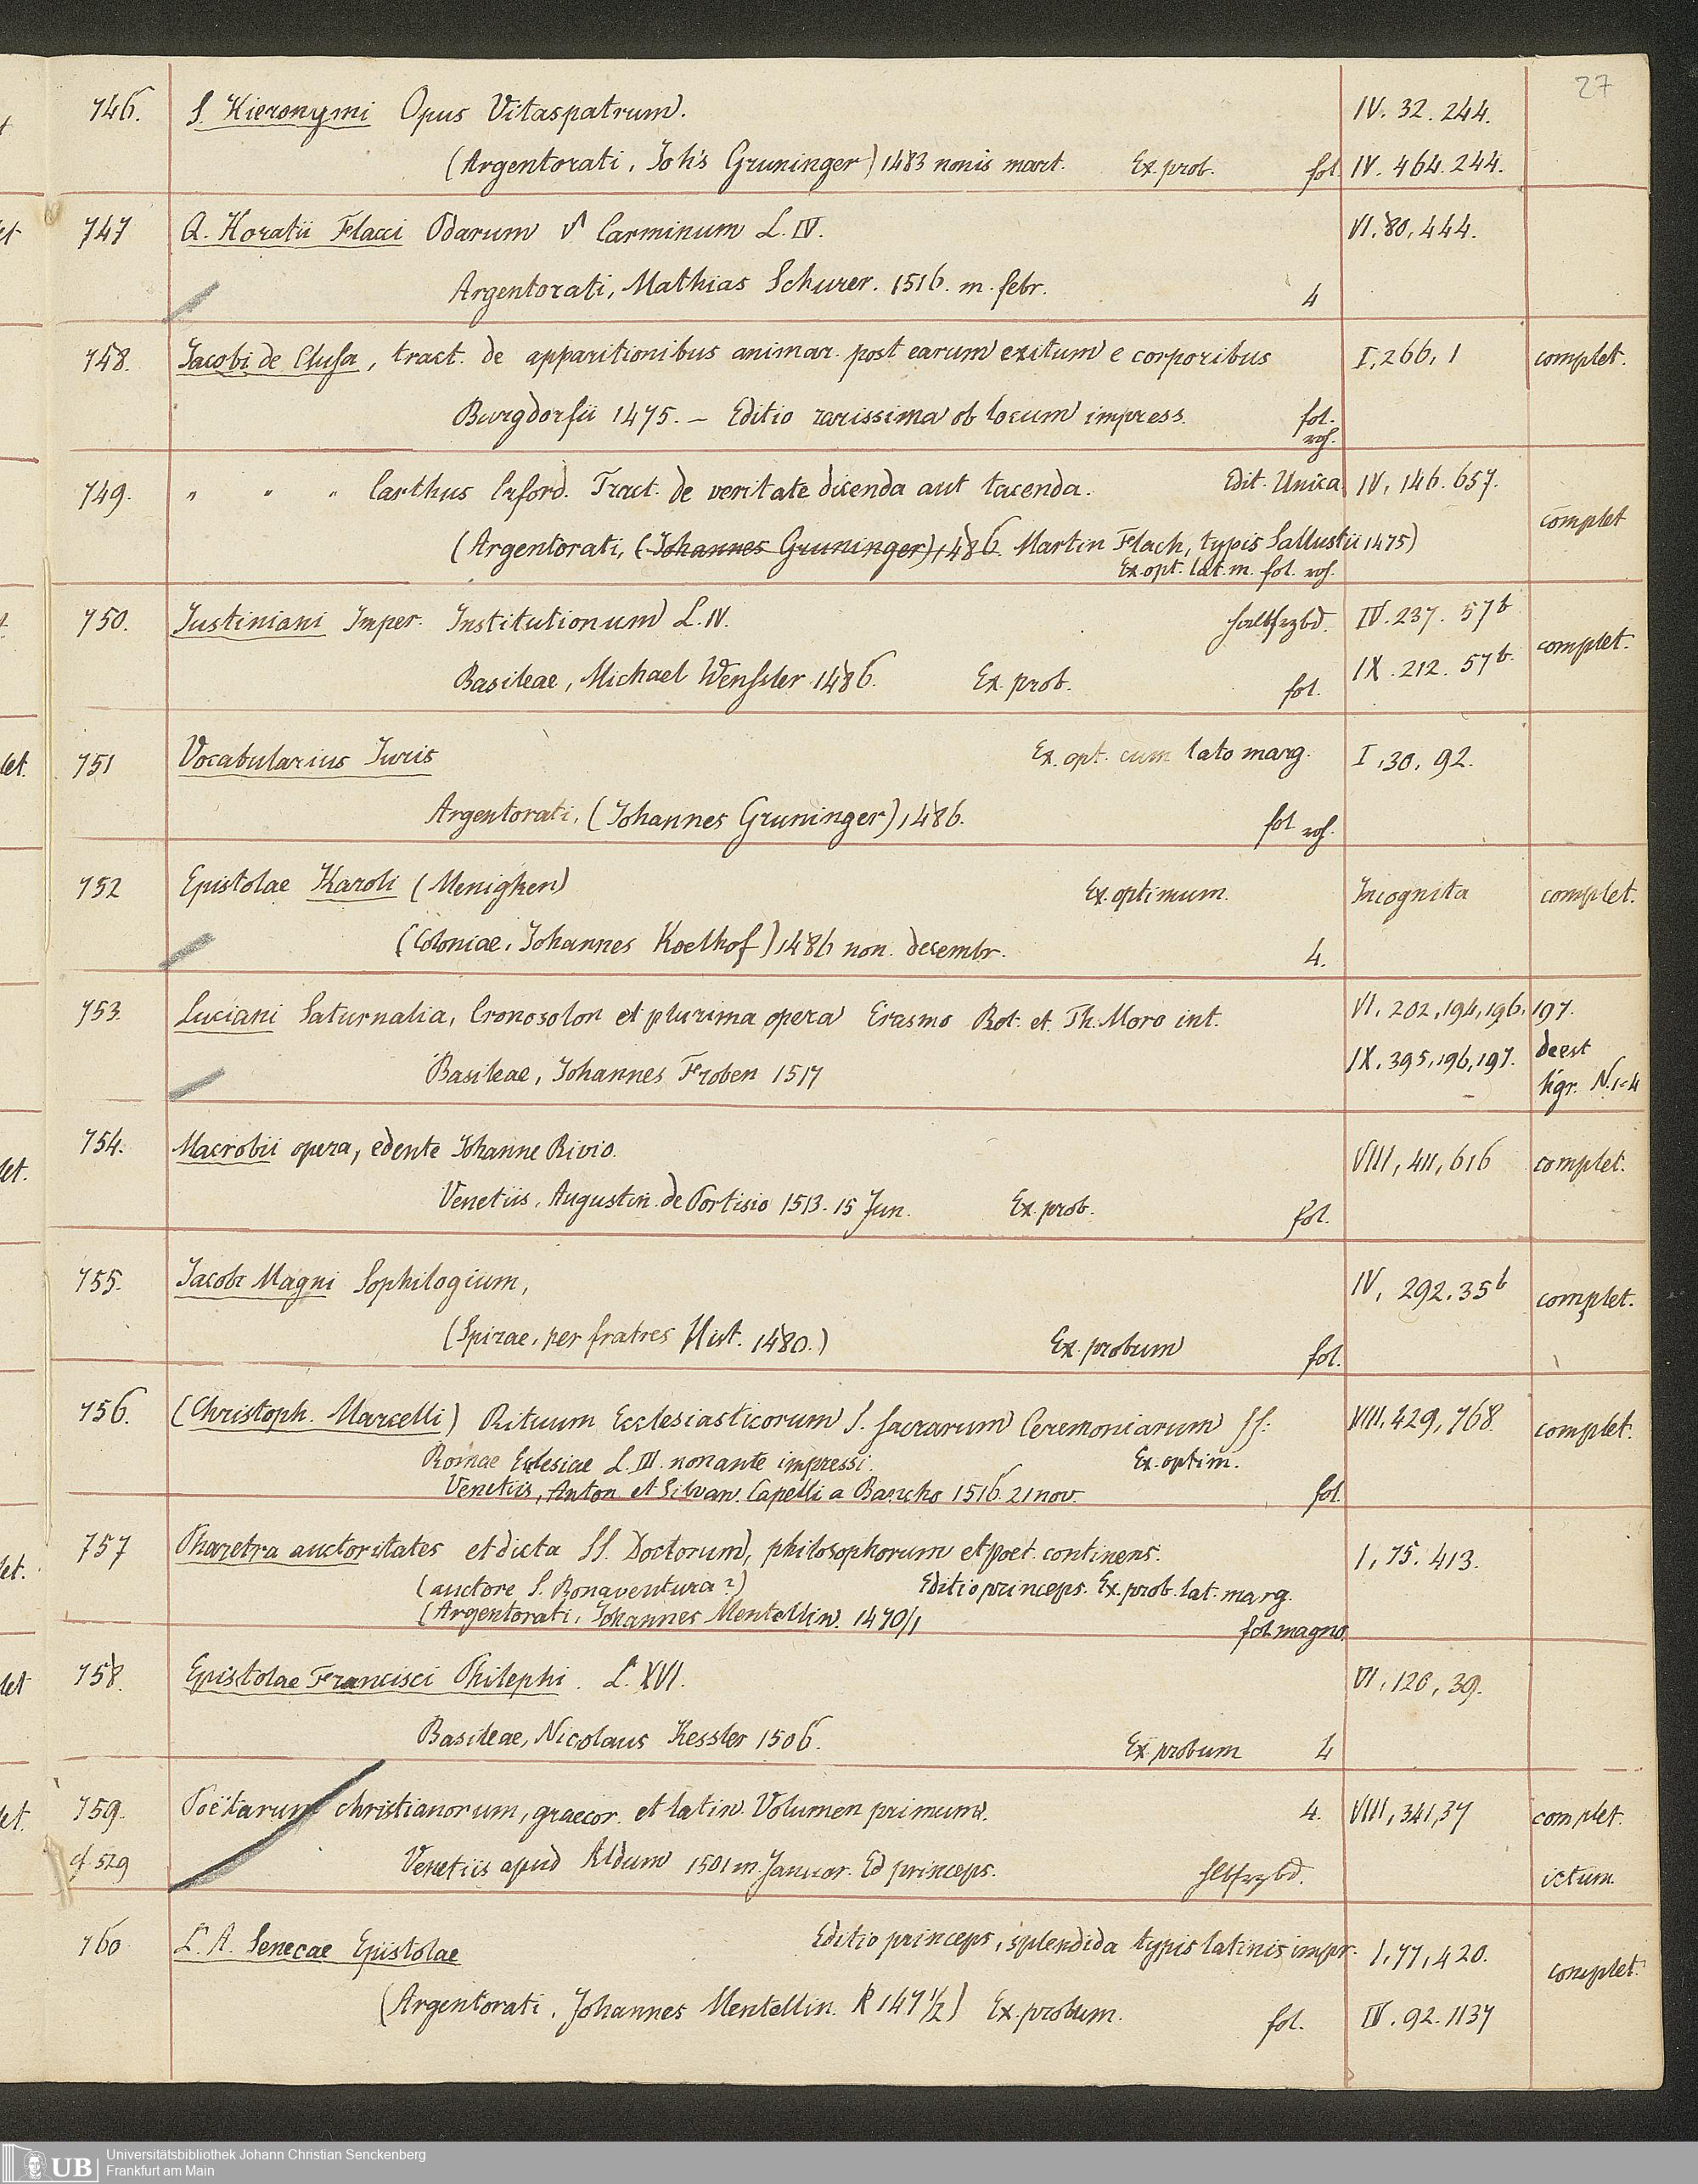 27
746. S. Hieronymi Opus Vitaspatrum. IV. 32. 244.
(Argentorati, Joh's Gruninger) 1483 nonis mart. Ex. prob. fol IV. 464. 244.
747 Q. Horatii Flacci Odarum Carminum L. IV. VI. 80, 444.
Argentorati, Mathias Schurer. 1516. m. febr. 4
748. Jacobi de Clusa, tract. de apparitionibus animar. post earum exitum e corporibus I, 266, 1 complet.
Burgdorfii 1475. — Editio rarissima ob locum impress. fol.
roh.
749. " " " Carthus Erford. Tract. de veritate dicenda aut tacenda. Edit. Unica IV, 146. 657.
complet
(Argentorati, (Johannes Gruninger), 1486. Martin Flach, typis Sallustii 1475)
Ex. opt. lat. m. fol. roh.
750. Justiniani Imper. Institutionum L. IV. halbfrzbd. IV. 237. 57b
complet.
Basileae, Michael Wenssler 1486. Ex. prob. fol. IX. 212. 57b.
751 Vocabularius Juris Ex. opt. cum lato marg. I, 30, 92.
Argentorati, (Johannes Gruninger), 1486. fol roh.
752 Epistolae Karoli (Menighen) Ex. optimum. Incognita complet.
(Coloniae, Johannes Koelhof) 1486 non. decembr. 4.
753. Luciani Saturnalia, Cronosolon et plurima opera Erasmo Rot. et. Th. Moro int. VI. 202, 194, 196. 197.
Basileae, Johannes Froben 1517 IX. 395, 196, 197. deest
ligr. N. 1-4
754. Macrobii opera, edente Johanne Rivio. VIII, 411, 616 complet.
Venetiis, Augustin de Portisio 1513. 15 Jun. Ex. prob. fol.
755. Jacobi Magni Sophilogium, IV, 292. 35b complet.
(Spirae, per fratres Hist. 1480.) Ex. probum fol.
756. (Christoph. Marcelli) Rituum Ecclesiasticorum S. sacrarum Ceremoniarum SS. VIII, 429, 768. complet.
Romae Eclesiae L. III. non ante impressi. Ex. optim.
Venetiis, Anton et Silvan. Capelli a Bancho 1516. 21 nov. fol.
757 Pharetra auctoritates et dicta SS. Doctorum, philosophorum et poet. continens. I, 75. 413.
(auctore S. Bonaventura?) Editio princeps. Ex. prob. lat. marg.
(Argentorati, Johannes Mentellin. 1470/1 fol magno.
758. Epistolae Francisci Philephi. L. XVI. VI, 126, 39.
Basileae, Nicolaus Kessler 1506. Ex. probum 4
759. Poëtarum christianorum, graecor. et latin. Volumen primum. 4. VIII, 341, 37 complet.
cf. 529 Venetiis apud Aldum 1501 m. Januar. Ed princeps. hlbfrzbd. ictum.
760 L. A. Senecae Epistolae Editio princeps, splendida typis latinis impr. I, 77, 420. complet.
(Argentorati, Johannes Mentellin. R 147 1/2) Ex. probum. fol. IV. 92. 1137
UB Universitätsbibliothek Johann Christian Senckenberg
Frankfurt am Main